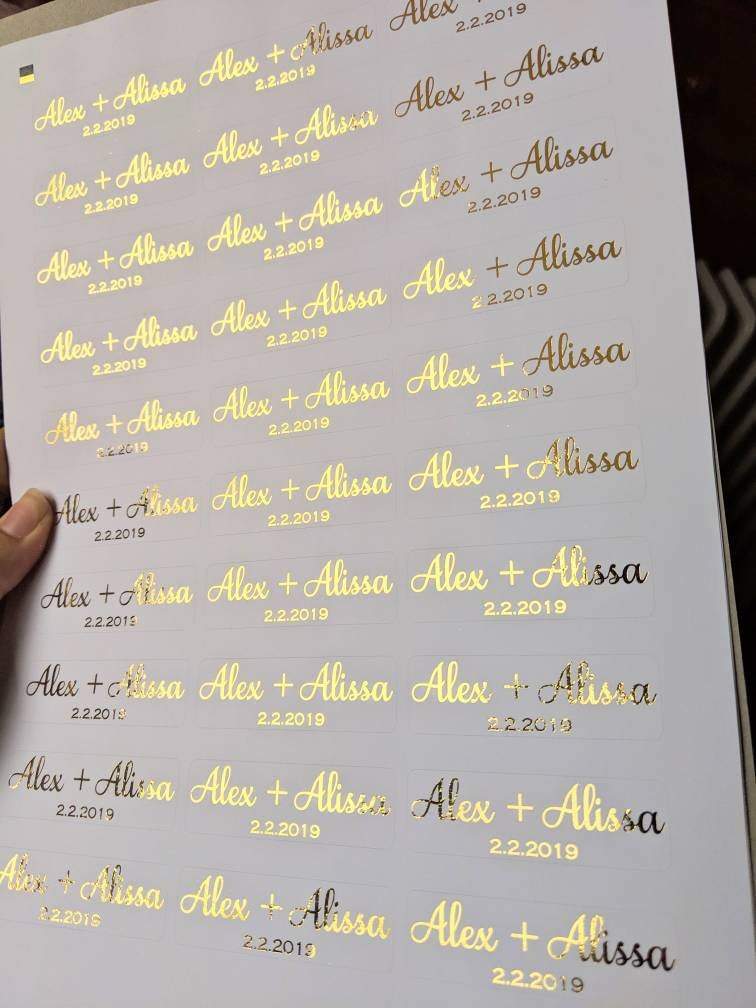 Alex + Alissa
2.2.2019
Alex + Alissa
2.2.2019
Alex
2.2.2019
Alex + Alissa
2.2.2019
Alex + Alissa
2.2.2019
Alex + Alissa
2.2.2019
Alex + Alissa
2.2.2019
Alex + Alissa
2.2.2019
Alex + Alissa
2.2.2019
Alex + Alissa
2.2.2019
Alex + Alissa
2.2.2019
Alex + Alissa
2.2.2019
Alex + Alissa
2.2.2019
Alex + Alissa
2.2.2019
Alex + Alissa
2.2.2019
Alex + Alissa
2.2.2019
Alex + Alissa
2.2.2019
Alex + Alissa
2.2.2019
Alex + Alissa
2.2.2019
Alex + Alissa
2.2.2019
Alex + Alissa
2.2.2019
Alex + Alissa
2.2.2019
Alex + Alissa
2.2.2019
Alex + Alissa
2.2.2019
Alex + Alissa
2.2.2019
Alex + Alissa
2.2.2019
Alex + Alissa
2.2.2019
Alex + Alissa
2.2.2019
Alex + Alissa
2.2.2019
Alex + Alissa
2.2.2019